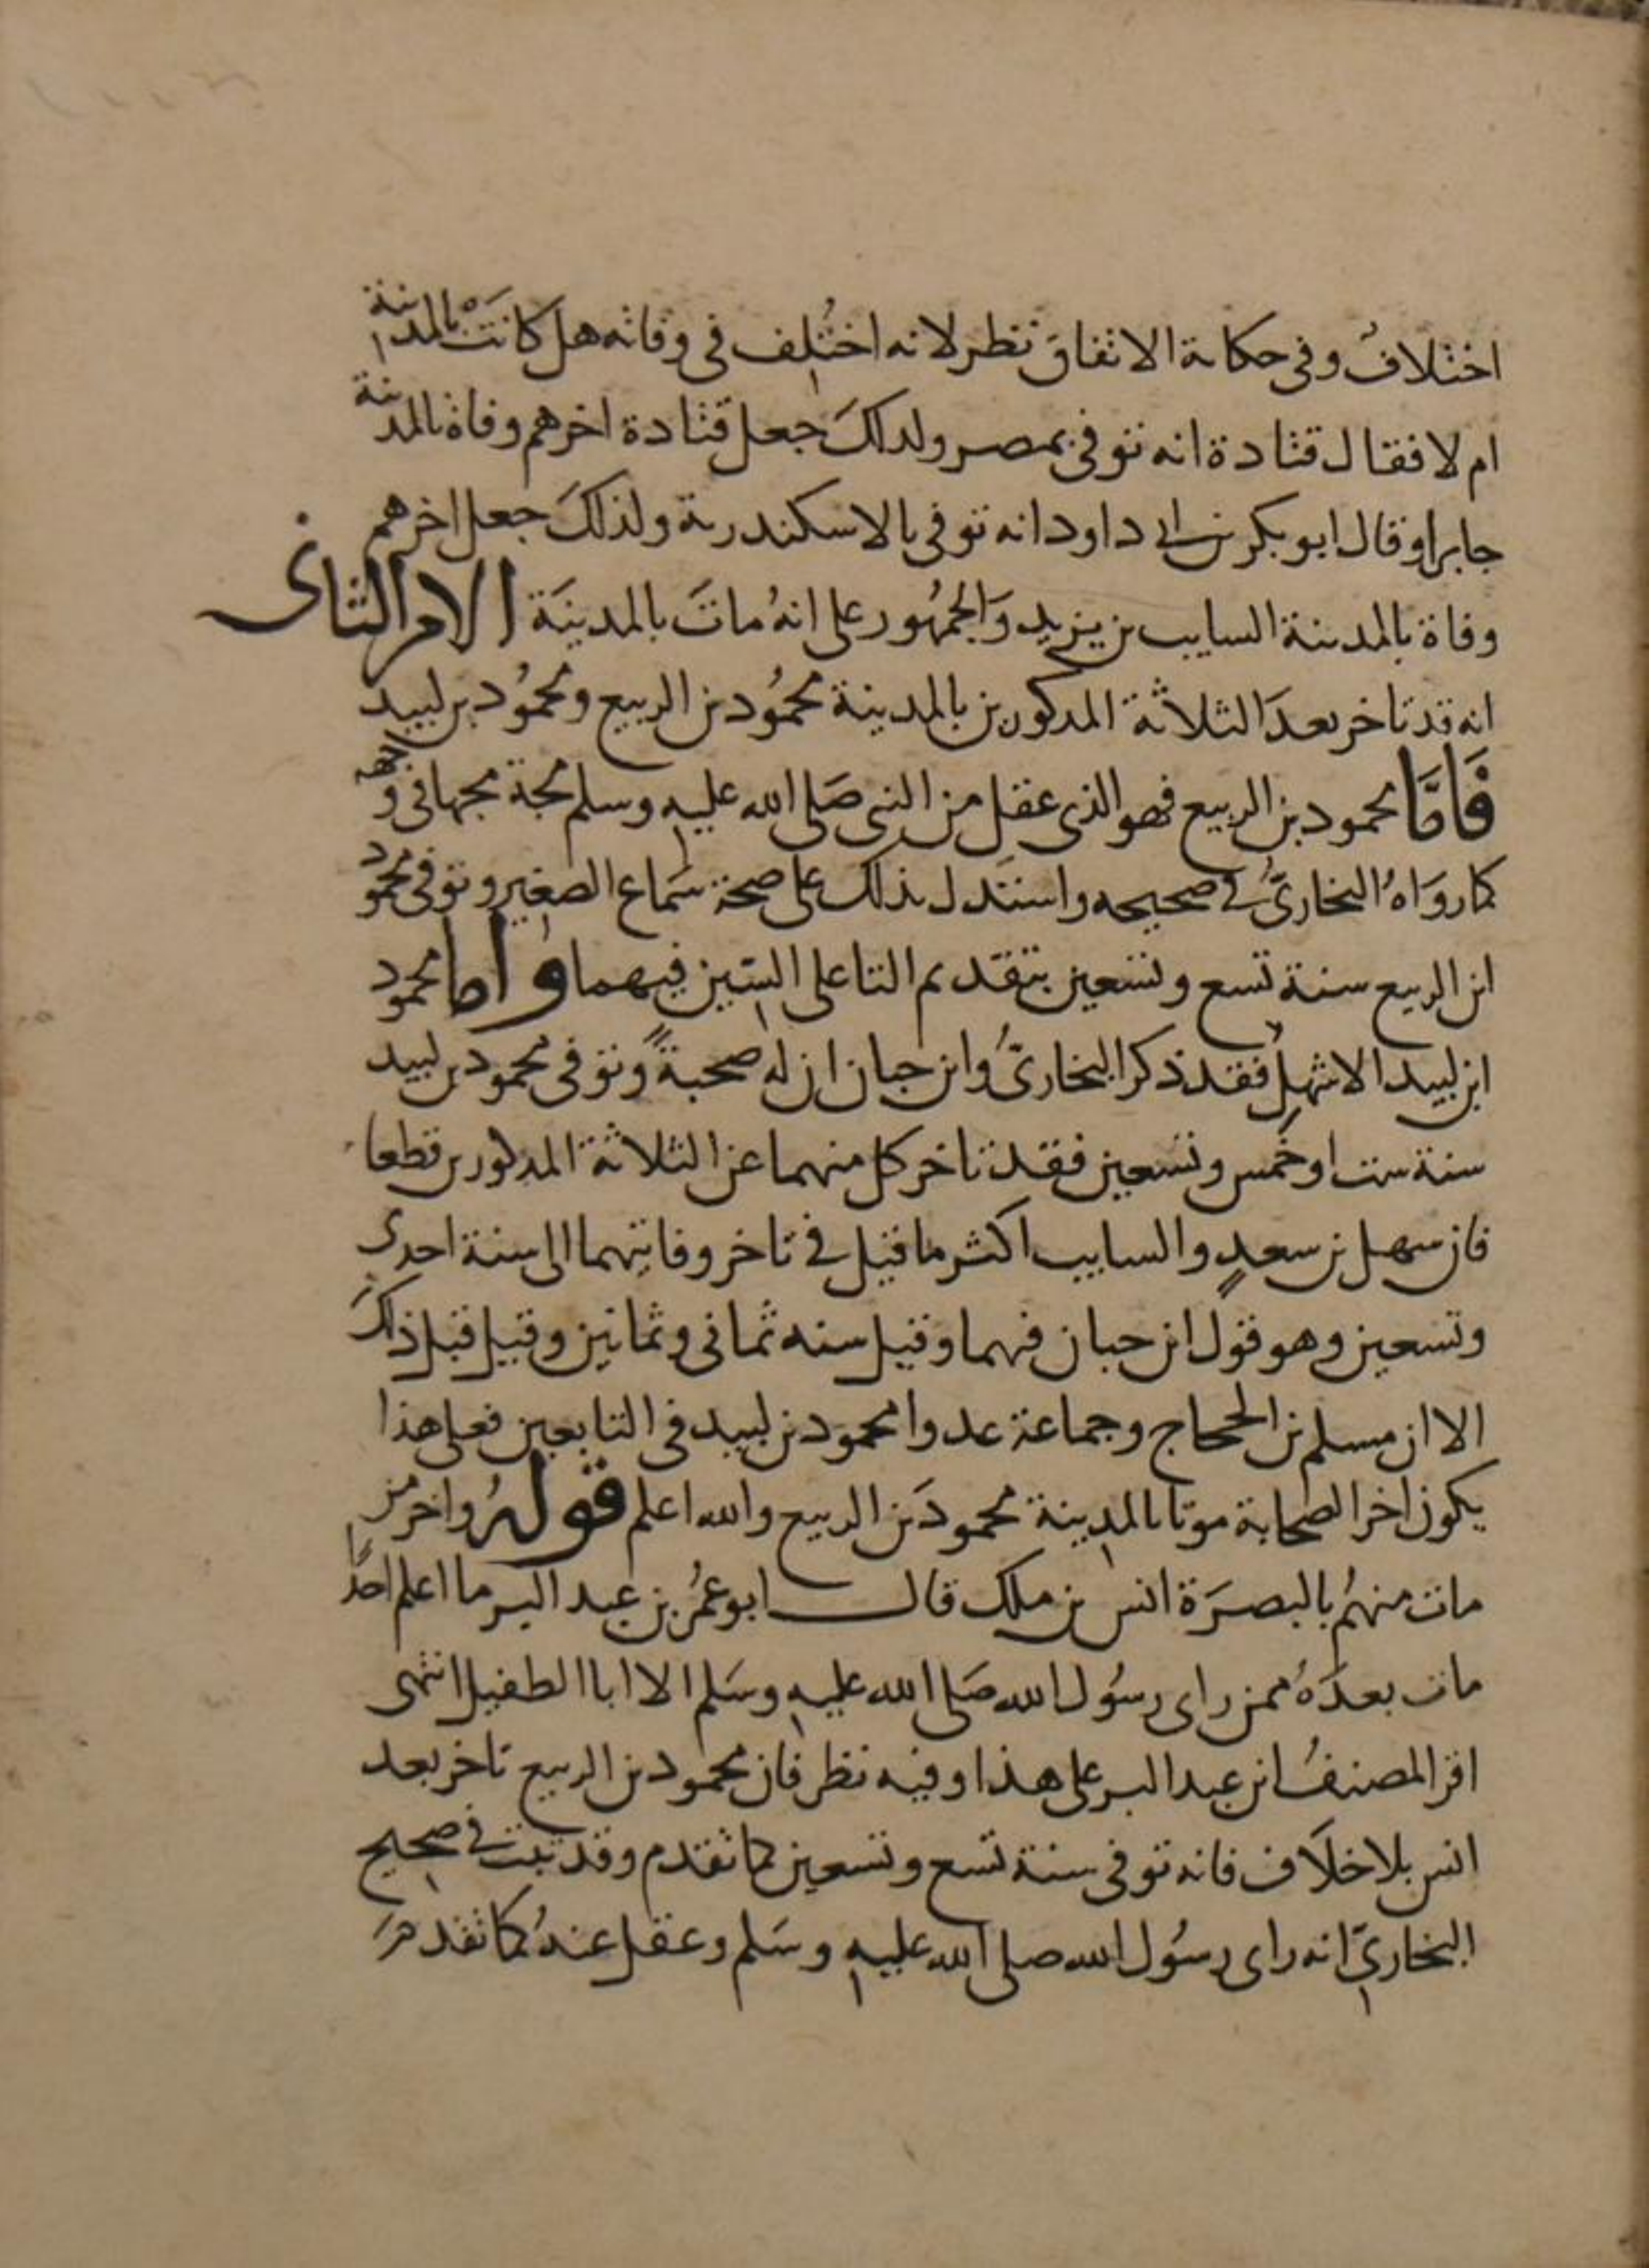 اختلاف وفى حكاية الاتفاق نظر لانه اختلف فى وفاته هل كانت بالمدينة
ام لا فقال قتادة انه توفى بمصر ولذلك جعل قتادة اخرهم وفاة بالمدينة
جابرا وقال ابو بكر بن ابى داود انه توفى بالاسكندرية ولذلك جعل اخرهم
وفاة بالمدينة السايب بن يزيد والجمهور على انه مات بالمدينة الامر الثانى
انه قد تاخر بعد الثلاثة المذكورين بالمدينة محمود بن الربيع ومحمود بن لبيد
فاما محمود بن الربيع فهو الذى عقل من النبى صلى الله عليه وسلم مجة مجها فى وجهه
كما رواه البخارى فى صحيحه واستدل بذلك على صحة سماع الصغير وتوفى محمود
ابن الربيع سنة تسع وتسعين بتقديم التا على السين فيهما واما محمود
ابن لبيد الاشهلى فقد ذكر البخارى وابن حبان ان له صحبة وتوفى محمود بن لبيد
سنة ست او خمس وتسعين فقد تاخر كل منهما عن الثلاثة المذكورين قطعا
فان سهل بن سعد والسايب اكثر ما قيل فى تاخر وفاتهما الى سنة احدى
وتسعين وهو قول ابن حبان فيهما وقيل سنه ثمانى وثمانين وقيل قبل ذلك
الا ان مسلم بن الحجاج وجماعة عدوا محمود بن لبيد فى التابعين فعلى هذا
يكون اخر الصحابة موتا بالمدينة محمود بن الربيع والله اعلم قوله واخر من
مات منهم بالبصرة انس بن ملك قال ابو عمر بن عبد البر ما اعلم احدا
مات بعده ممن راى رسول الله صلى الله عليه وسلم الا ابا الطفيل انتهى
اقر المصنف ابن عبد البر على هذا وفيه نظر فان محمود بن الربيع تاخر بعد
انس بلا خلاف فانه توفى سنة تسع وتسعين كما تقدم وقد ثبت فى صحيح
البخارى انه راى رسول الله صلى الله عليه وسلم وعقل عنه كما تقدم